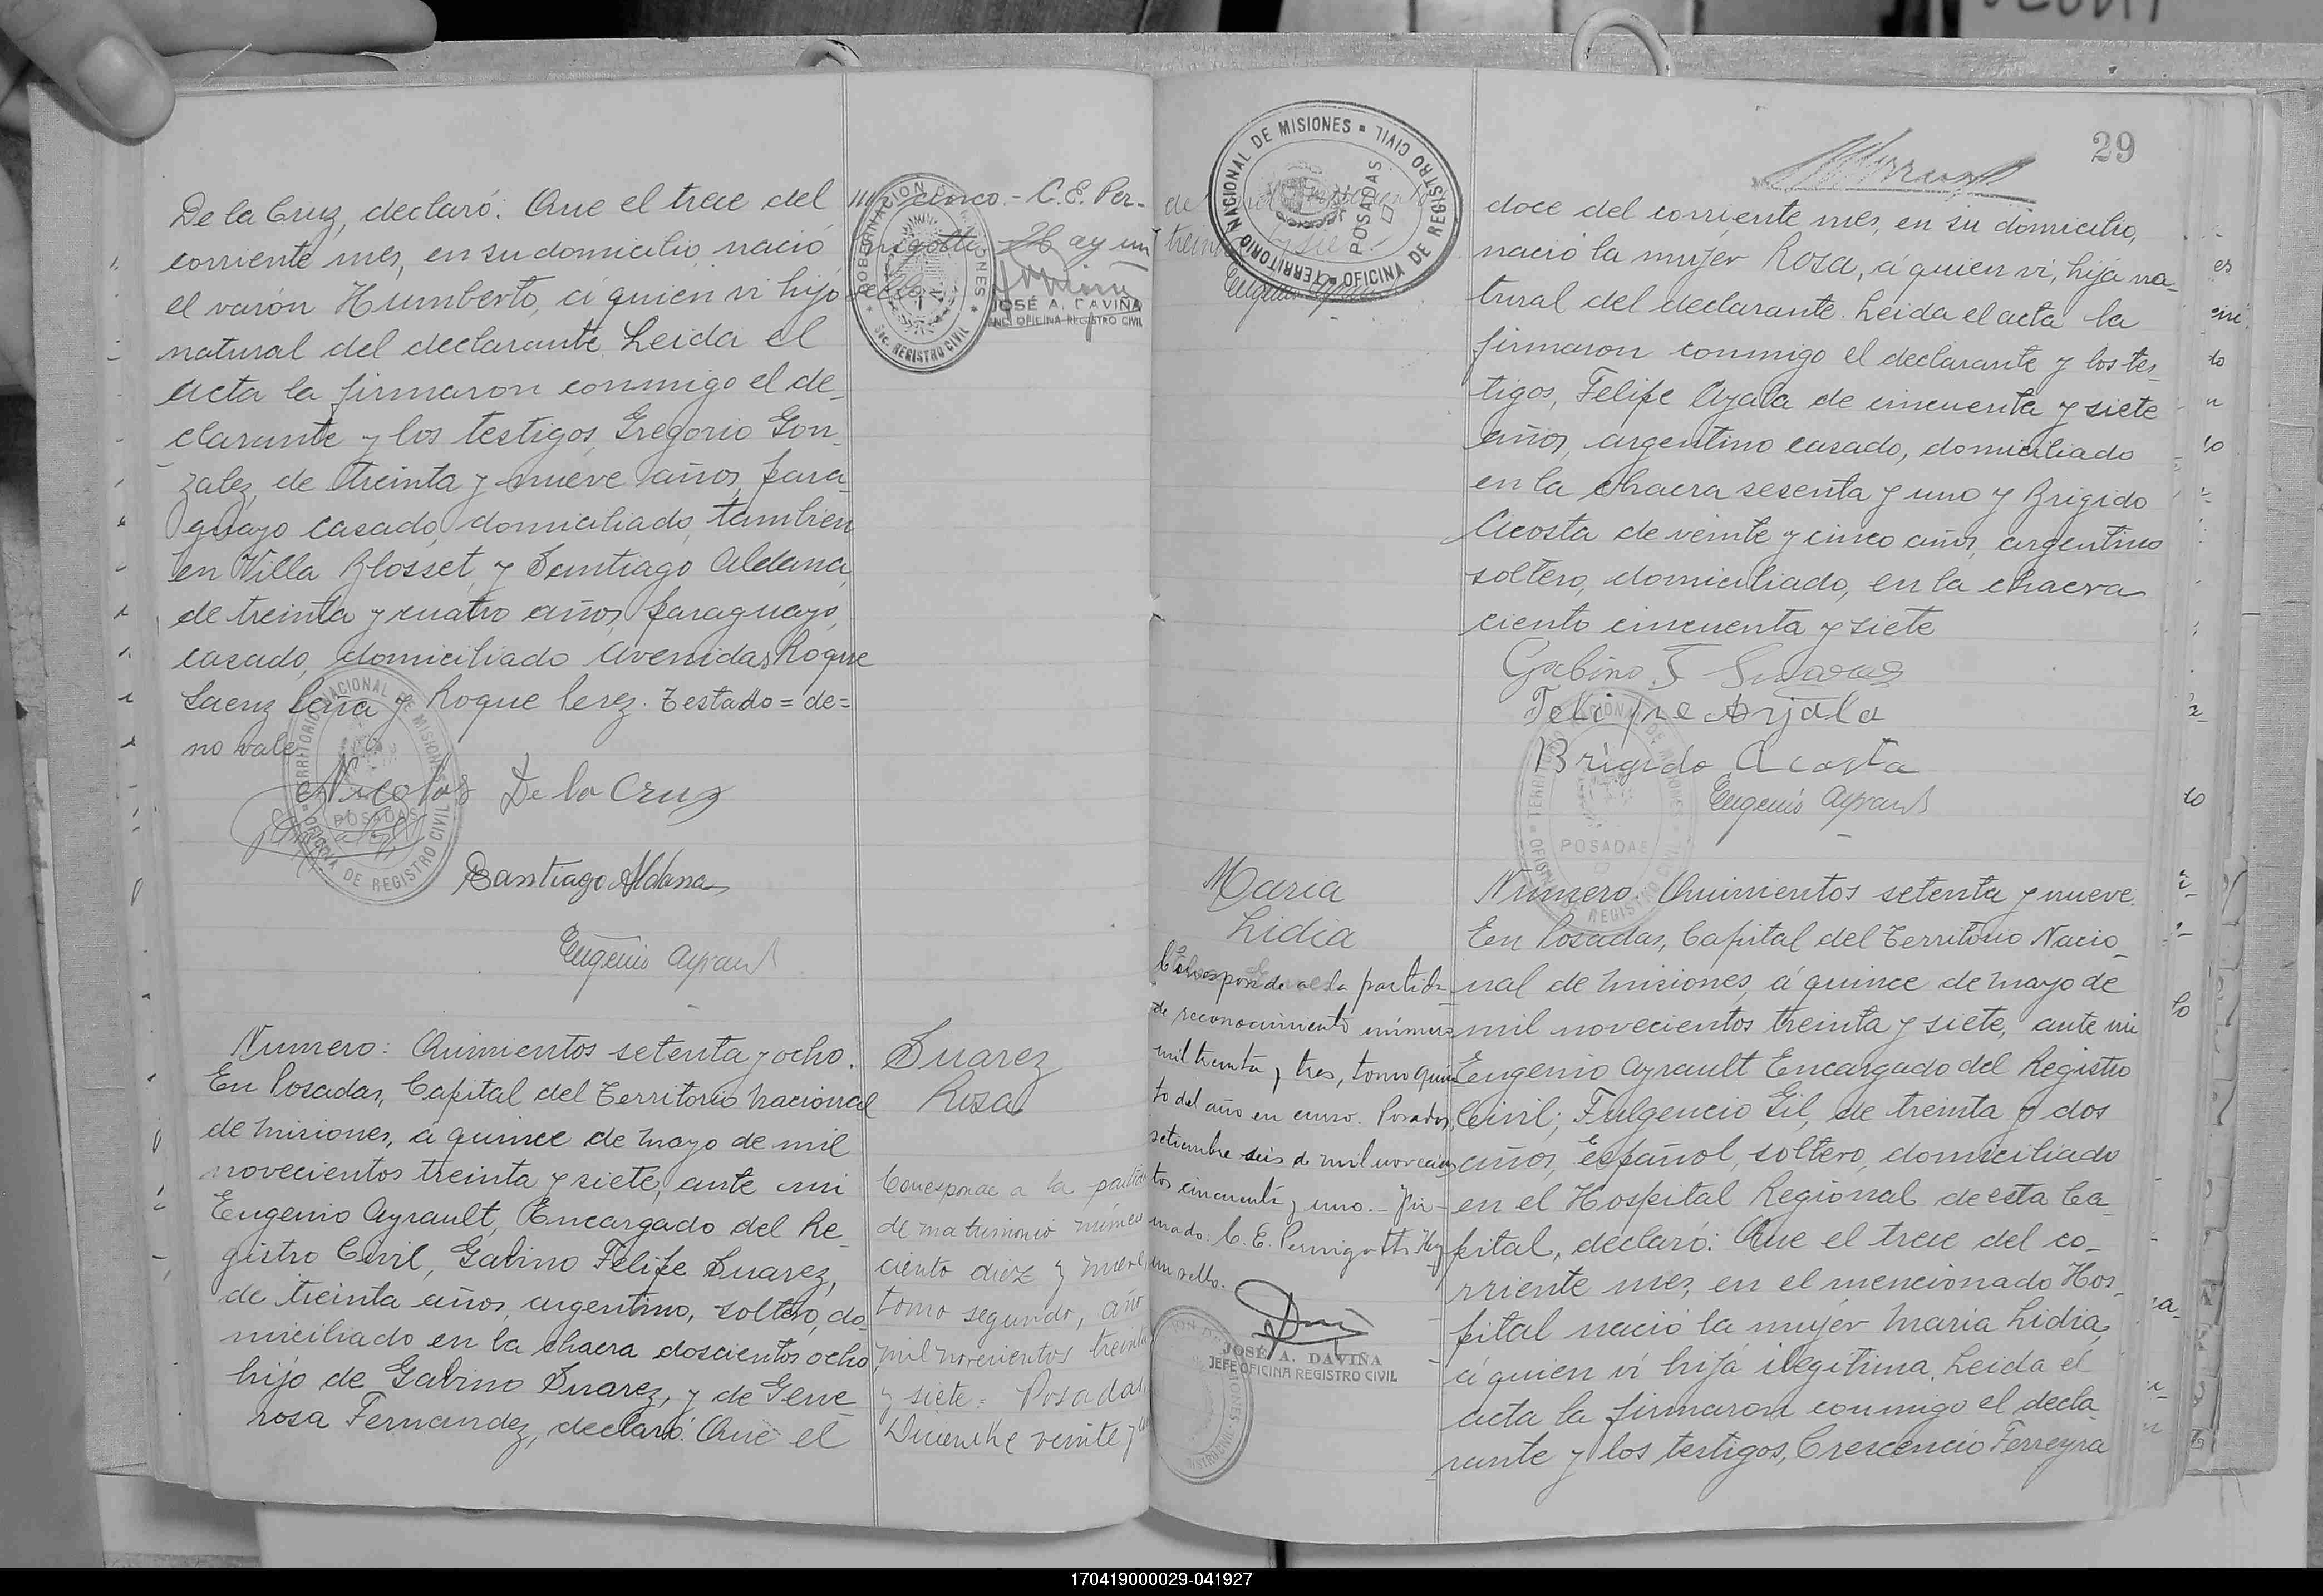 De la Cruz, declaró: Que el trece del
corriente mes, en su domicilio nació
el varón Humberto, á quien vi hijo
natural del declarante. Leida el
acta la firmaron conmigo el de-
clarante y los testigos, Gregorio Gon-
zalez, de treinta y nueve años, para-
guayo casado, domiciliado, tambien
en Villa Blosset, y Santiago Aldana,
de treinta y cuatro años, paraguayo,
casado, domiciliado Avenidas Roque
Saenz Peña y Roque Perez. Testado = de =
no vale
Nicolas De la Cruz
Santiago Aldana
Eugenio Ayrault
cinco. - C. E. Per-
nigotti - Hay un
sello
GOBERNACION DE MISIONES
Sec. REGISTRO CIVIL
JOSÉ A. DAVIÑA
ENC. OFICINA REGISTRO CIVIL
TERRITORIO NACIONAL DE MISIONES
OFICINA DE REGISTRO CIVIL
POSADAS
Numero: Quinientos setenta y ocho.
En Posadas, Capital del Territorio Nacional
de Misiones, á quince de Mayo de mil
novecientos treinta y siete, ante mi
Eugenio Ayrault, Encargado del Re-
gistro Civil, Gabino Felipe Suarez,
de treinta años, argentino, soltero, do-
miciliado en la chacra doscientos ocho
hijo de Gabino Suarez, y de Gene-
rosa Fernandez, declaró: Que el
Suarez
Rosa
Corresponde a la partida
de matrimonio número
ciento diez y nueve,
tomo segundo, año
mil novecientos treinta
y siete = Posadas
Diciembre veinte y
de mil novecientos
treinta y siete
Eugenio Ayrault
TERRITORIO NACIONAL DE MISIONES
OFICINA DE REGISTRO CIVIL
POSADAS
29
doce del corriente mes, en su domicilio,
nació la mujer Rosa, á quien vi, hija na-
tural del declarante. Leida el acta la
firmaron conmigo el declarante y los tes-
tigos, Felipe Ayala de cincuenta y siete
años, argentino casado, domiciliado
en la chacra sesenta y uno y Brigido
Acosta de veinte y cinco años, argentino
soltero, domiciliado, en la chacra
ciento cincuenta y siete
Gabino F Suarez
Felipe Ayala
Brigido Acosta
Eugenio Ayrault
TERRITORIO NACIONAL DE MISIONES
OFICINA DE REGISTRO CIVIL
POSADAS
Maria
Lidia
Corresponde a la partida
de reconocimiento número
mil treinta y tres, tomo quin-
to del año en curso. Posadas,
setiembre seis de mil novecien-
tos cincuenta y uno. - Fir-
mado: C. E. Pernigotti. Hay
un sello.
JOSÉ A. DAVIÑA
JEFE OFICINA REGISTRO CIVIL
Número: Quinientos setenta y nueve.
En Posadas, Capital del Territorio Nacio-
nal de Misiones, á quince de Mayo de
mil novecientos treinta y siete, ante mi
Eugenio Ayrault Encargado del Registro
Civil; Fulgencio Gil, de treinta y dos
años, español, soltero, domiciliado
en el Hospital Regional de esta Ca-
pital, declaró: Que el trece del co-
rriente mes, en el mencionado Hos-
pital nació la mujer Maria Lidia,
á quien vi hija ilegitima. Leida el
acta la firmaron conmigo el decla-
rante y los testigos, Crescencio Ferreyra
170419000029-041927